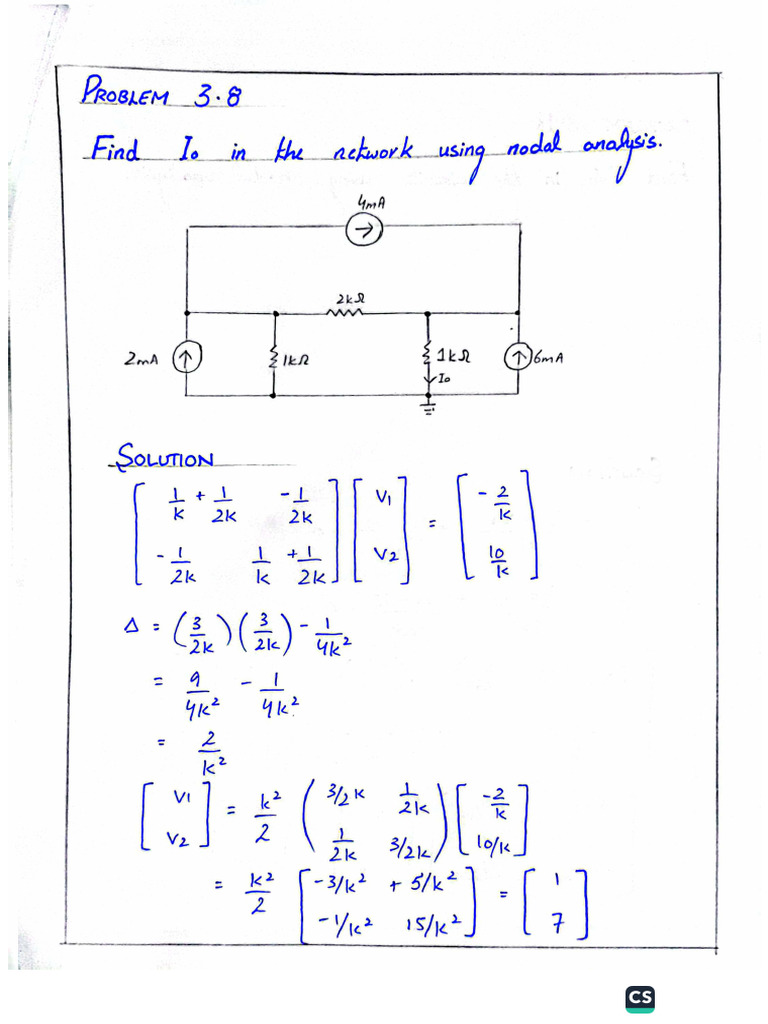 PROBLEM 3.8
Find Io in the network using nodal analysis.
4mA
2kΩ
2mA
1kΩ
1kΩ
6mA
Io
SOLUTION
[ 1/k + 1/2k   -1/2k ] [ V1 ] = [ -2/k ]
[ -1/2k   1/k + 1/2k ] [ V2 ]   [ 10/k ]
Δ = (3/2k)(3/2k) - 1/4k²
= 9/4k² - 1/4k²
= 2/k²
[ V1 ] = k²/2 ( 3/2k   1/2k ) [ -2/k ]
[ V2 ]        ( 1/2k   3/2k ) [ 10/k ]
= k²/2 [ -3/k² + 5/k² ] = [ 1 ]
[ -1/k²   15/k² ]   [ 7 ]
CS